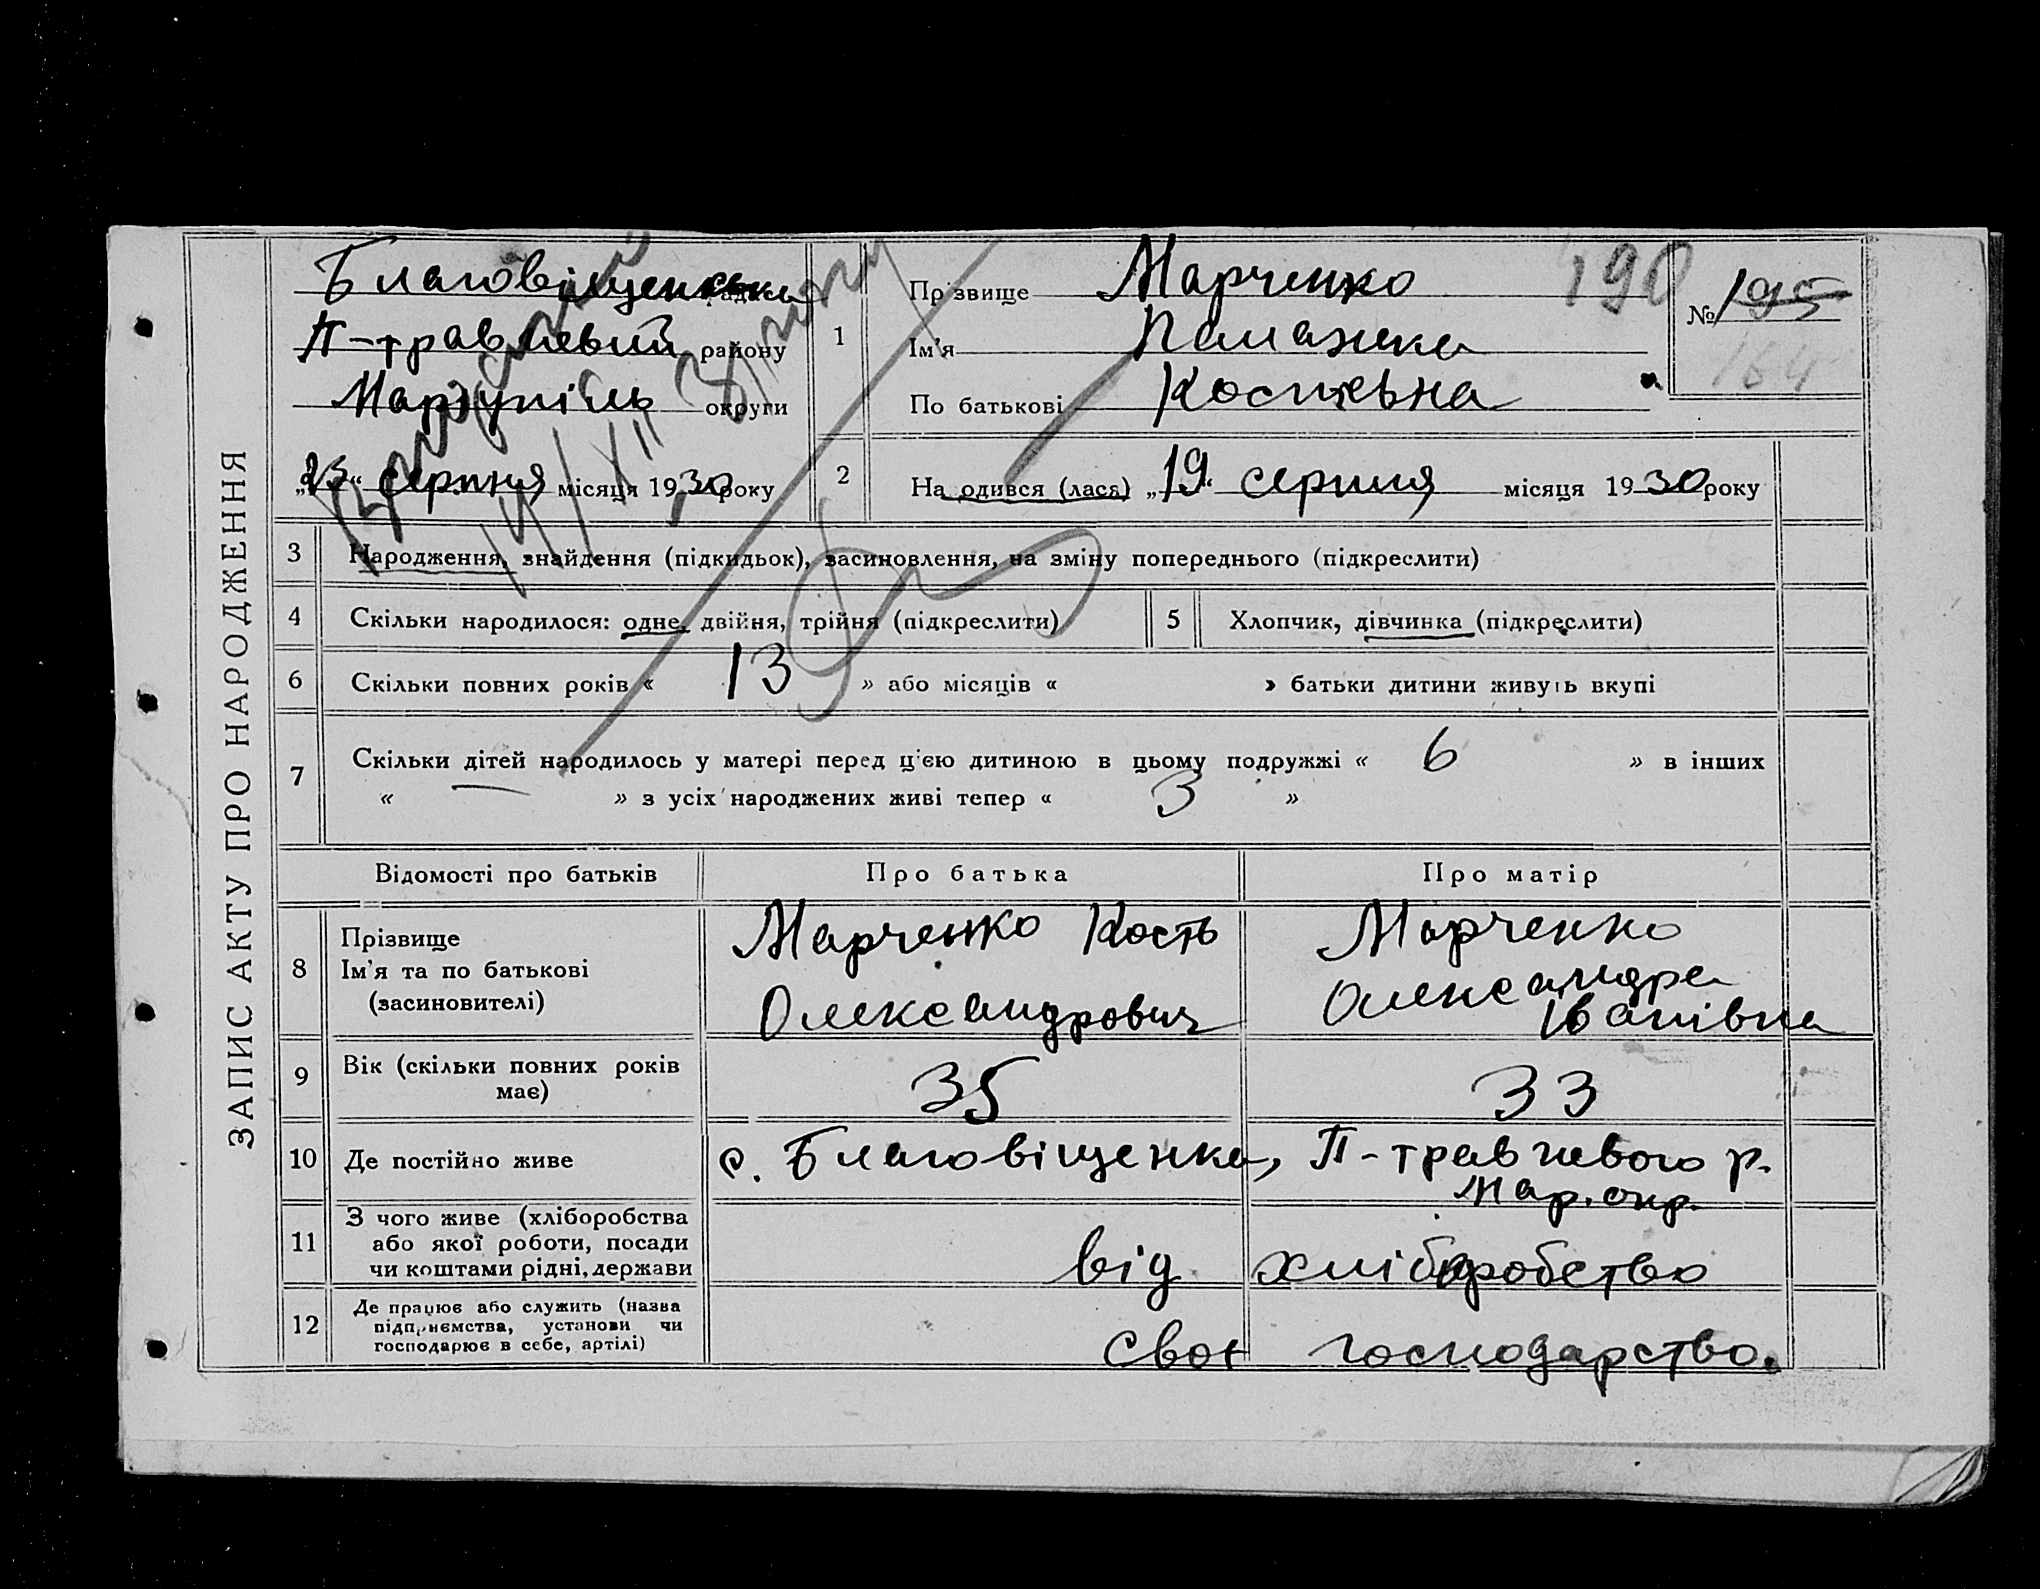 ЗАПИС АКТУ ПРО НАРОДЖЕННЯ
Благовіщенська ради
П-травневий району
Маріупіль округи
„25“ серпня місяця 1930 року
1
Прізвище Марченко
Ім'я Палажка
По батькові Костєвна
190
№ 195
164
2
На одився (лася) „19“ серпня місяця 1930 року
3 Народження, знайдення (підкидьок), засиновлення, на зміну попереднього (підкреслити)
4 Скільки народилося: одне, двійня, трійня (підкреслити)
5 Хлопчик, дівчинка (підкреслити)
6 Скільки повних років « 13 » або місяців « » батьки дитини живуть вкупі
7 Скільки дітей народилось у матері перед ц'єю дитиною в цьому подружжі « 6 » в інших
« — » з усіх народжених живі тепер « 3 »
Відомості про батьків Про батька Про матір
8 Прізвище
Ім'я та по батькові
(засиновителі)
Марченко Кость
Олександрович
Марченко
Олександра
Іванівна
9 Вік (скільки повних років
має)
35 33
10 Де постійно живе с. Благовіщенка, П-травневого р.
Мар. окр.
11 З чого живе (хліборобства
або якої роботи, посади
чи коштами рідні, держави
від хліборобство
12 Де працює або служить (назва
підприємства, установи чи
господарює в себе, артілі)
своє господарство.